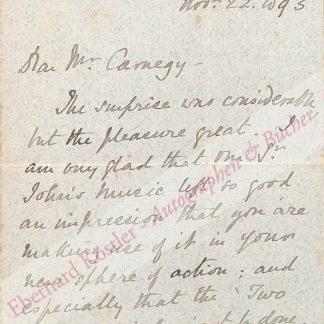 Nov. 22. 1893
Dear Mr. Carnegy -
The surprise was considerable
but the pleasure great. I
am very glad that our St.
John's music left so good
an impression that you are
making use of it in your
new sphere of action; and
especially that the "Two
to done
Eberhard Köstler - Autographen & Bücher